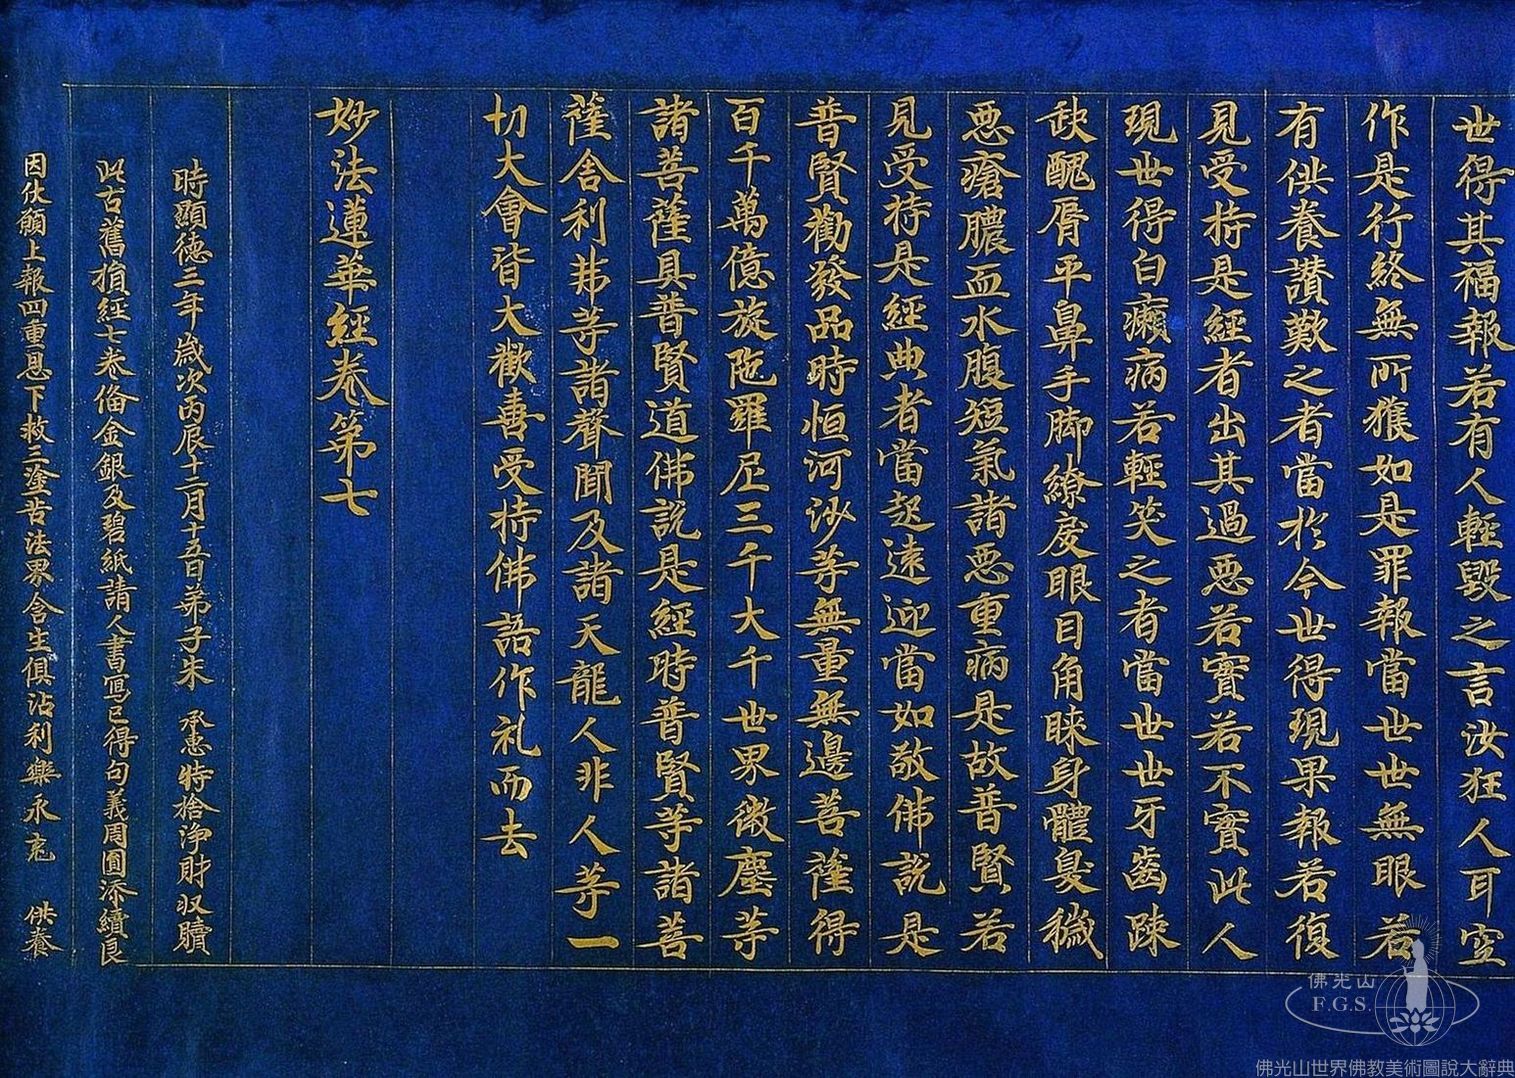 世得其福報若有人輕毀之言汝狂人耳空
作是行終無所獲如是罪報當世世無眼若
有供養讃歎之者當於今世得現果報若復
見受持是經者出其過惡若實若不實此人
現世得白癩病若輕笑之者當世世牙齒踈
缺醜脣平鼻手脚繚戾眼目角睞身體臭穢
惡瘡膿血水腹短氣諸惡重病是故普賢若
見受持是經典者當起遠迎當如敬佛說是
普賢勸發品時恒河沙等無量無邊菩薩得
百千萬億旋陁羅尼三千大千世界微塵等
諸菩薩具普賢道佛說是經時普賢等諸菩
薩舎利弗等諸聲聞及諸天龍人非人等一
切大會皆大歡喜受持佛語作礼而去
妙法蓮華經卷第七
時顯德三年歲次丙辰十二月十五日弟子朱 承惠特捨淨財収贖
此古舊損經七卷俻金銀及碧紙請人書冩已得句義周圓添續良
因伏願上報四重恩下救三塗苦法界含生俱沾利樂永充 供養
佛光山
F.G.S.
佛光山世界佛教美術圖說大辭典